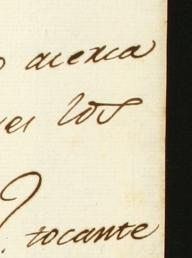 acerca
los
tocante